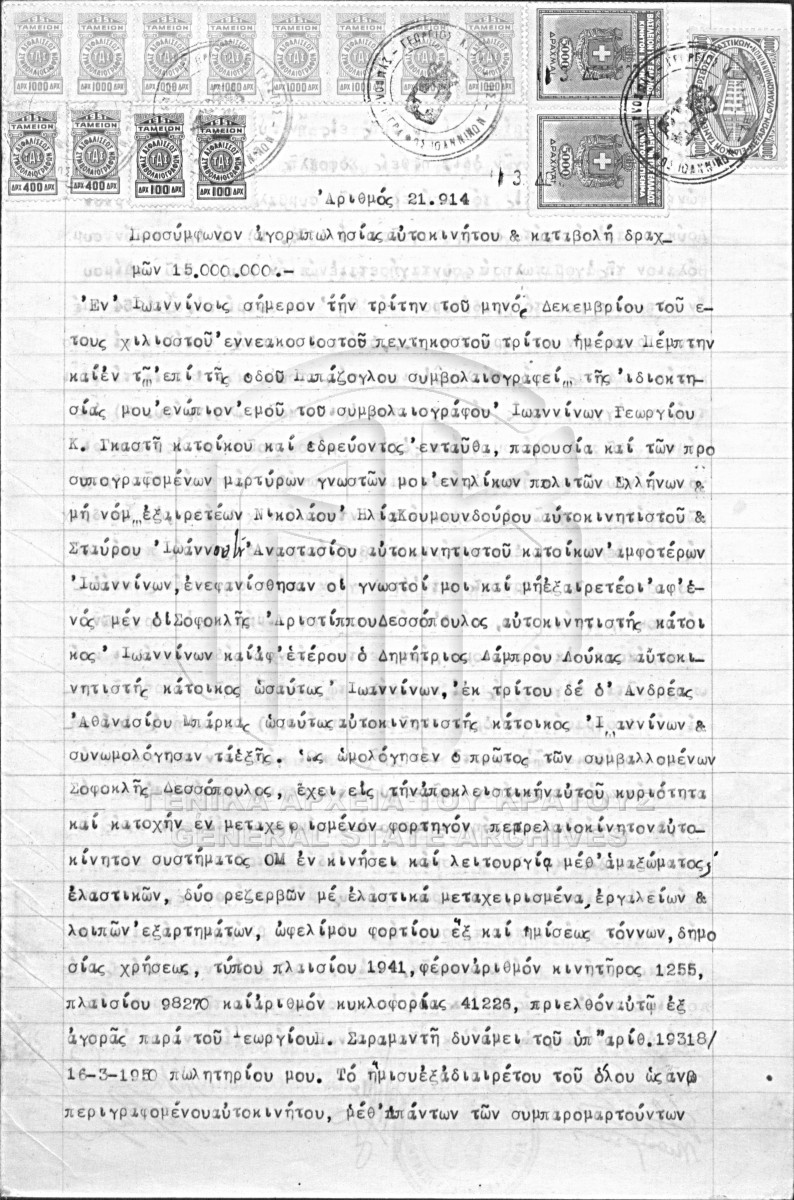 Ἀριθμός 21.914
Προσύμφωνον ἀγοραπωλησίας αὐτοκινήτου & καταβολή δραχ-
μῶν 15.000.000.-
Ἐν Ἰωαννίνοις σήμερον τήν τρίτην τοῦ μηνός Δεκεμβρίου τοῦ ἔ-
τους χιλιοστοῦ ἐννεακοσιοστοῦ πεντηκοστοῦ τρίτου ἡμέραν Πέμπτην
καί ἐν τῷ ἐπί τῆς ὁδοῦ Μπάζογλου συμβολαιογραφείῳ τῆς ἰδιοκτη-
σίας μου ἐνώπιον ἐμοῦ τοῦ συμβολαιογράφου Ἰωαννίνων Γεωργίου
Κ. Γκαστῆ κατοίκου καί ἑδρεύοντος ἐνταῦθα, παρουσία καί τῶν προ
συπογραφομένων μαρτύρων γνωστῶν μοι ἐνηλίκων πολιτῶν Ἑλλήνων &
μή νόμῳ ἐξαιρετέων Νικολάου Ἠλία Κουμουνδούρου αὐτοκινητιστοῦ &
Σταύρου Ἰωάννου Ἀναστασίου αὐτοκινητιστοῦ κατοίκων ἀμφοτέρων
Ἰωαννίνων, ἐνεφανίσθησαν οἱ γνωστοί μοι καί μή ἐξαιρετέοι ἀφ' ἑ-
νός μέν ὁ Σοφοκλῆς Ἀριστίππου Δεσσόπουλος αὐτοκινητιστής κάτοι
κος Ἰωαννίνων καί ἀφ' ἑτέρου ὁ Δημήτριος Λάμπρου Δούκας αὐτοκι-
νητιστής κάτοικος ὡσαύτως Ἰωαννίνων, ἐκ τρίτου δέ ὁ Ἀνδρέας
Ἀθανασίου Μπάρκας ὡσαύτως αὐτοκινητιστής κάτοικος Ἰωαννίνων &
συνωμολόγησαν τά ἑξῆς. Ὡς ὡμολόγησεν ὁ πρῶτος τῶν συμβαλλομένων
Σοφοκλῆς Δεσσόπουλος, ἔχει εἰς τήν ἀποκλειστικήν αὐτοῦ κυριότητα
καί κατοχήν ἕν μεταχειρισμένον φορτηγόν πετρελαιοκίνητον αὐτο-
κίνητον συστήματος ΟΜ ἐν κινήσει καί λειτουργίᾳ μεθ' ἁμαξώματος,
ἐλαστικῶν, δύο ρεζερβῶν μέ ἐλαστικά μεταχειρισμένα, ἐργαλείων &
λοιπῶν ἐξαρτημάτων, ὠφελίμου φορτίου ἕξ καί ἡμίσεως τόννων, δημο
σίας χρήσεως, τύπου πλαισίου 1941, φέρον ἀριθμόν κινητῆρος 1255,
πλαισίου 98270 καί ἀριθμόν κυκλοφορίας 41226, πριελθόν αὐτῷ ἐξ
ἀγορᾶς παρά τοῦ Γεωργίου Π. Σαραμαντῆ δυνάμει τοῦ ὑπ' ἀριθ. 19318/
16-3-1950 πωλητηρίου μου. Τό ἥμισυ ἐξ ἀδιαιρέτου τοῦ ὅλου ὡς ἄνω
περιγραφομένου αὐτοκινήτου, μεθ' ἁπάντων τῶν συμπαρομαρτούντων
ΓΕΝΙΚΑ ΑΡΧΕΙΑ ΤΟΥ ΚΡΑΤΟΥΣ
GENERAL STATE ARCHIVES